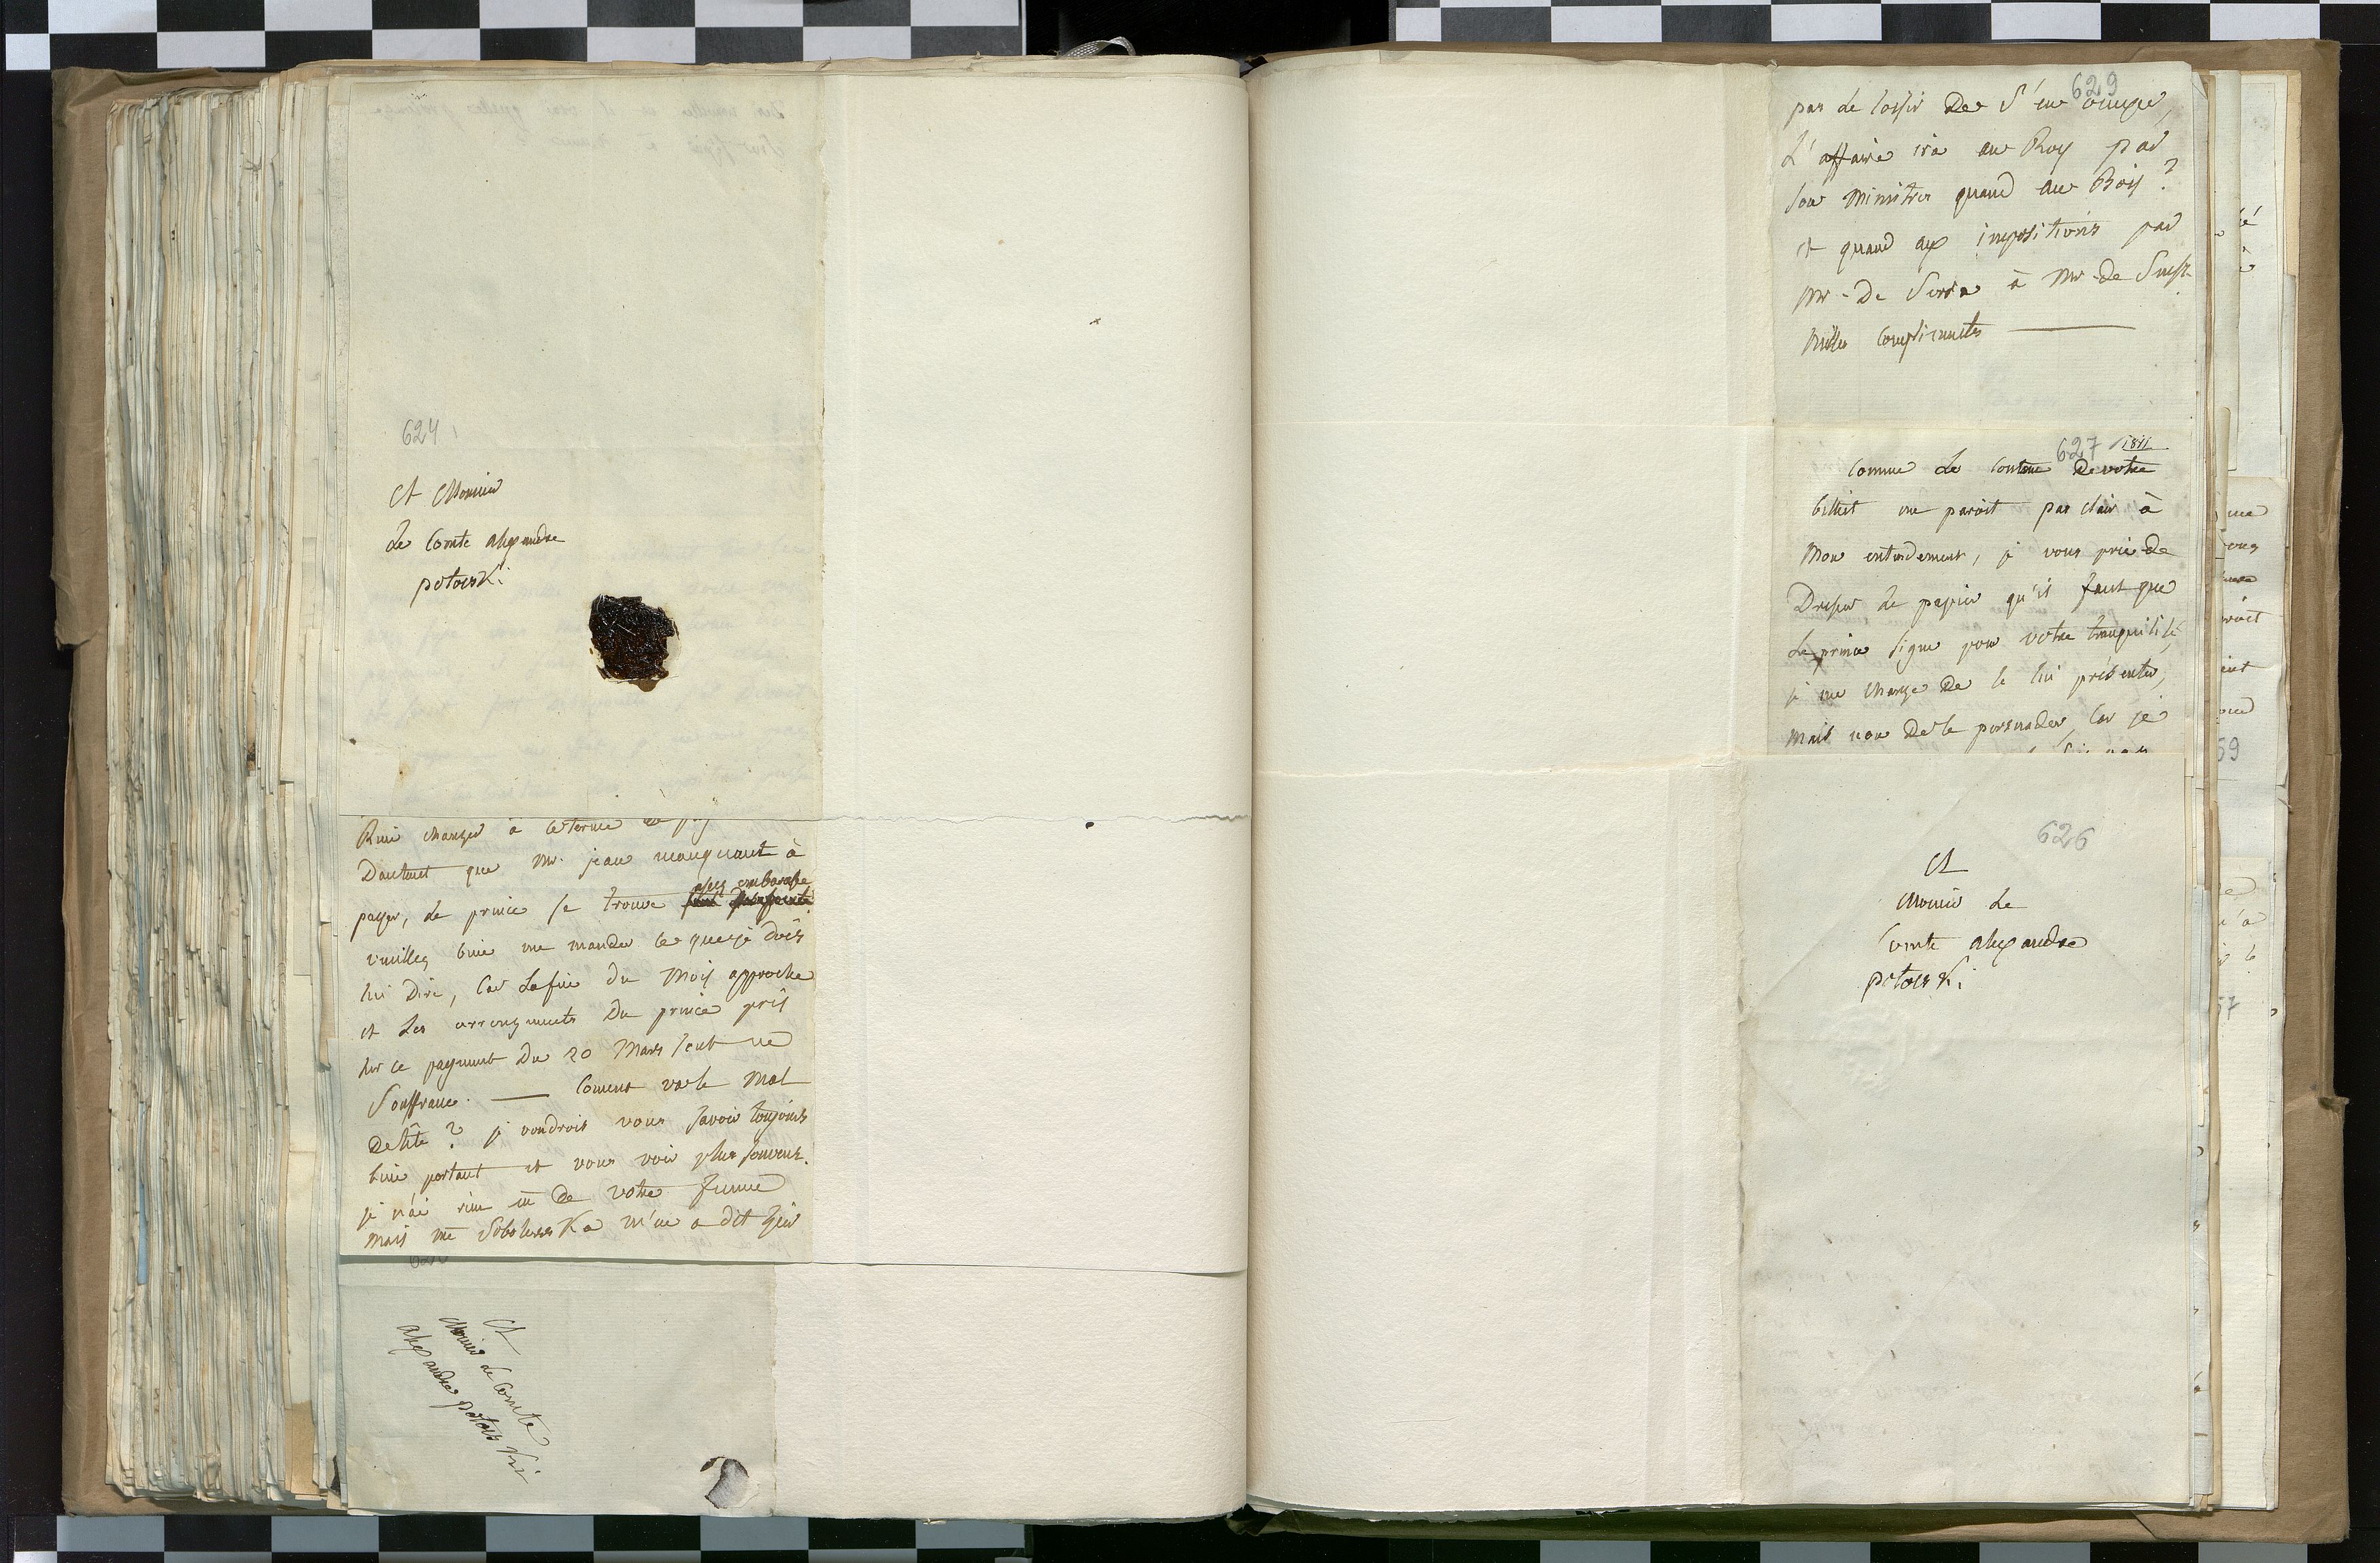 624
A Monsieur
Le Comte alexandre
potocki
Rien changer à ce terme
Dautant que Mr. jean manquant à
payer, Le prince se trouve assez embarasse
veuillez bien me mander ce que je dois
lui Dire, Car La fin du Mois approche
et Les arrengements Du prince pris
sur ce payment Du 20 Mars sont en
Souffrance. — Coment va le Mal
De tête? je voudrois vous savoir toujours
bien portant et vous voir plus souvent.
je n'ai rien de votre femme
mais Me Sobolewska m'en a dit hier
A
Monsieur Le Comte
Alexandre potocki
629
pas Le loisir De S'en occuper,
L'affaire ira au Roy par
son Ministre quand au Bois?
et quand aux impositions par
Mr. De Serra à Mr. De
Milles Compliments —
627 1811
Comme Le Contenu De votre
billiet me paroit pas clair à
Mon entendement, je vous prie De
Dresser Le papier qu'il faut que
Le prince signe pour votre tranquilité,
je me charge De le lui présenter,
Mais non De le persuader, Car je
626
A
Monsieur Le
Comte alexandre
potocki
59
57